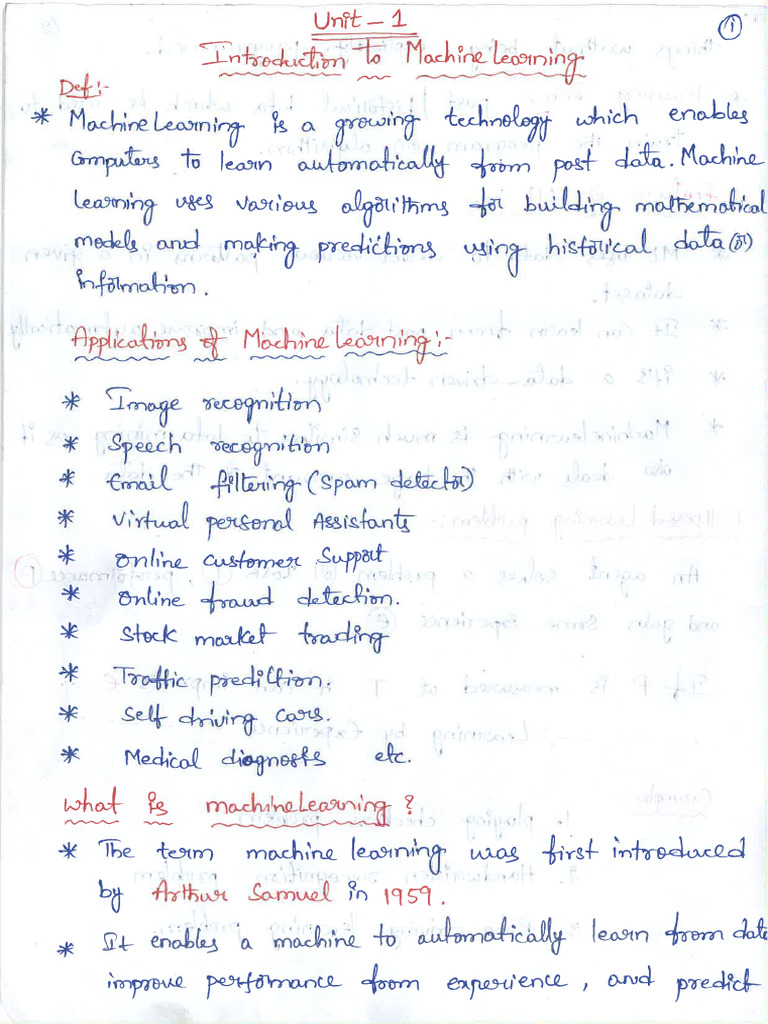 Unit - 1
1
Introduction to Machine Learning
Def:-
* Machine Learning is a growing technology which enables
Computers to learn automatically from past data. Machine
learning uses various algorithms for building mathematical
models and making predictions using historical data (or)
information.
Applications of Machine Learning:-
* Image recognition
* Speech recognition
* Email filtering (Spam detector)
* Virtual personal Assistants
* Online customer Support
* Online fraud detection.
* Stock market trading
* Traffic prediction.
* Self driving cars.
* Medical diagnosis etc.
What is machine Learning?
* The term machine learning was first introduced
by Arthur Samuel in 1959.
* It enables a machine to automatically learn from data
improve performance from experience, and predict